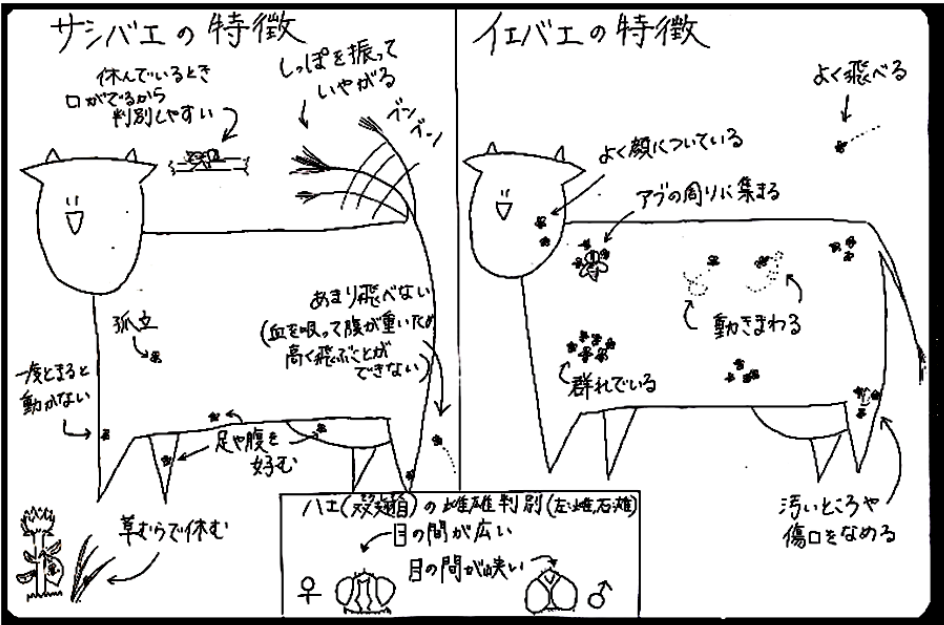 サシバエの特徴
休んでいるとき
口がでるから
判別しやすい
しっぽを振って
いやがる
ブン
ブン
孤立
一度とまると
動かない
あまり飛べない
(血を吸って腹が重いため
高く飛ぶことが
できない)
足や腹を
好む
草むらで休む
イエバエの特徴
よく飛べる
よく顔についている
アブの周りに集まる
動きまわる
群れでいる
汚いところや
傷口をなめる
ハエ(双翅目)の雌雄判別(左:雌 右:雄)
目の間が広い
目の間が狭い
♀
♂